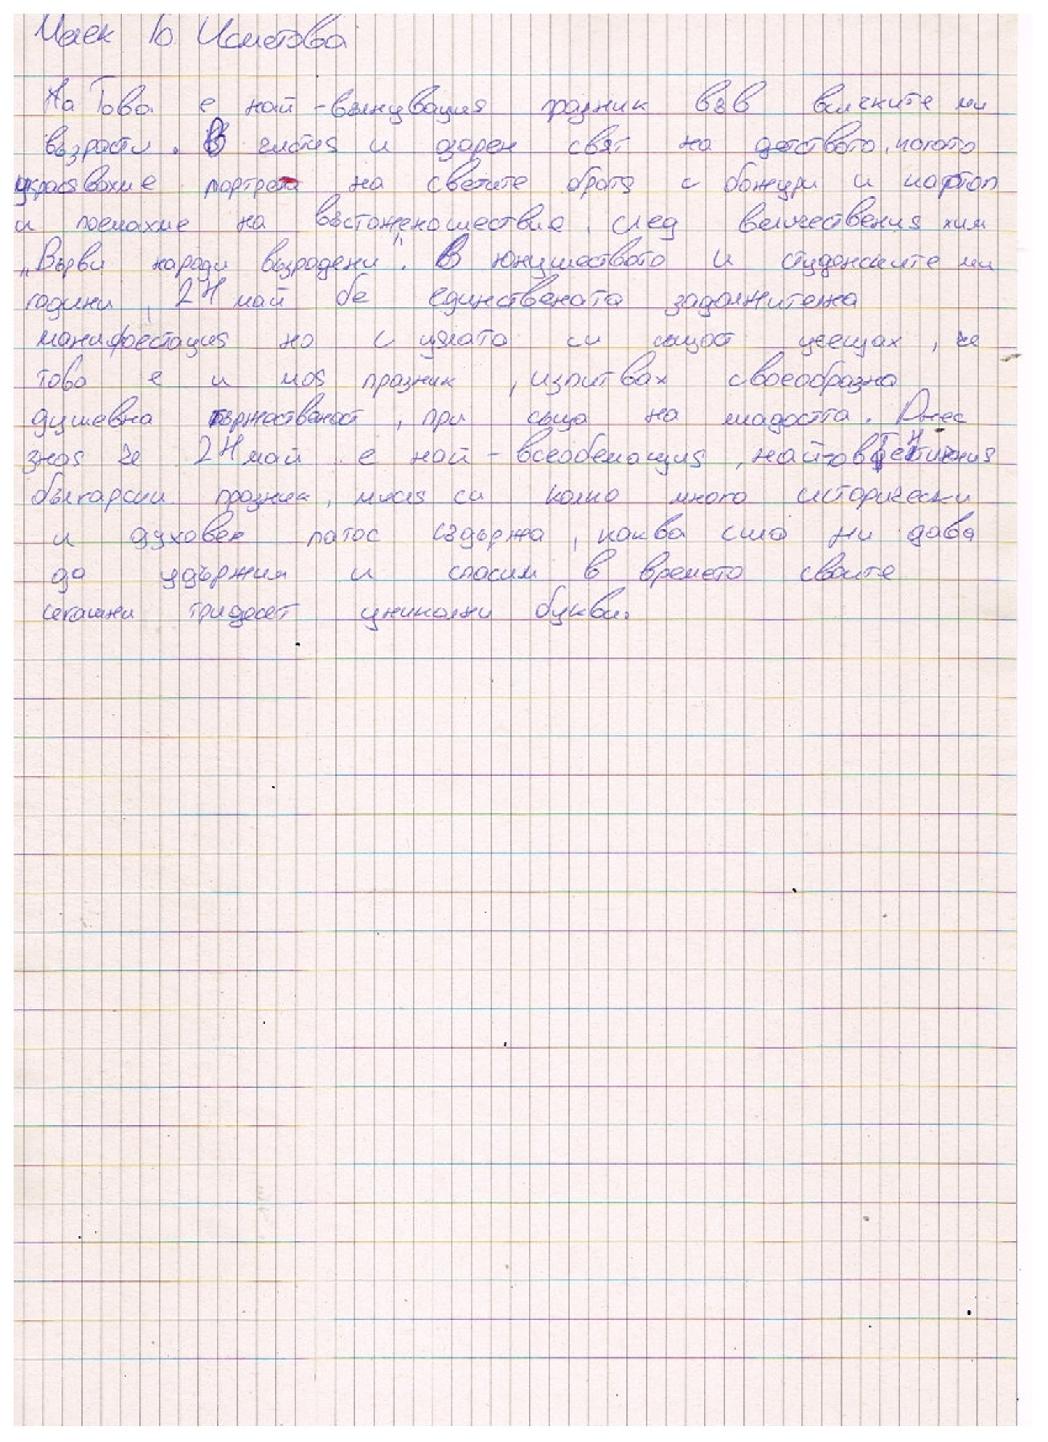 На Това е най-вълнуващия празник във всичките ми
възрасти. В чистия и дарен свят на детството, когато
украсявахме портрета на светите братя с божури и картон
и поемахме на
след величествения химн
„Върви народе възродени". В юношеството и студентските ми
години, 24 май бе единствената задължителна
манифестация но с цялата си същост усещах, че
това е и моя празник, изпитвах своеобразна
душевна тържественост, при съща на младостта. Днес
зная че 24 май е най-всеобемащия,
български празник, мисля си колко много исторически
и духовен патос съдържа, каква сила ни дава
да удържим и спасим в времето своите
сегашни тридесет уникални букви.